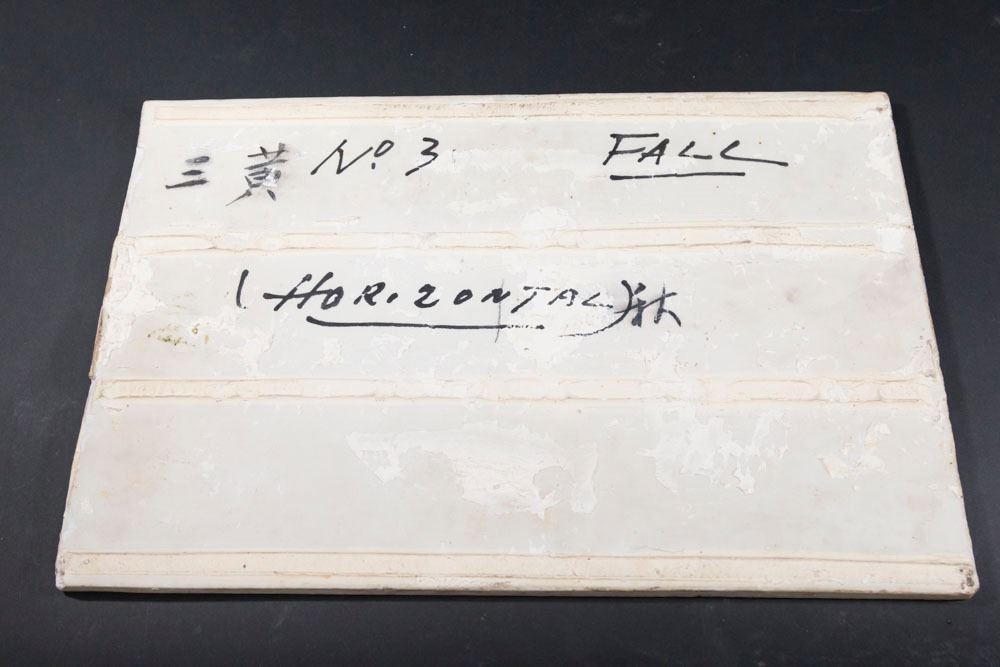 三黄 No 3 FALL
(HORIZONTAL)秋